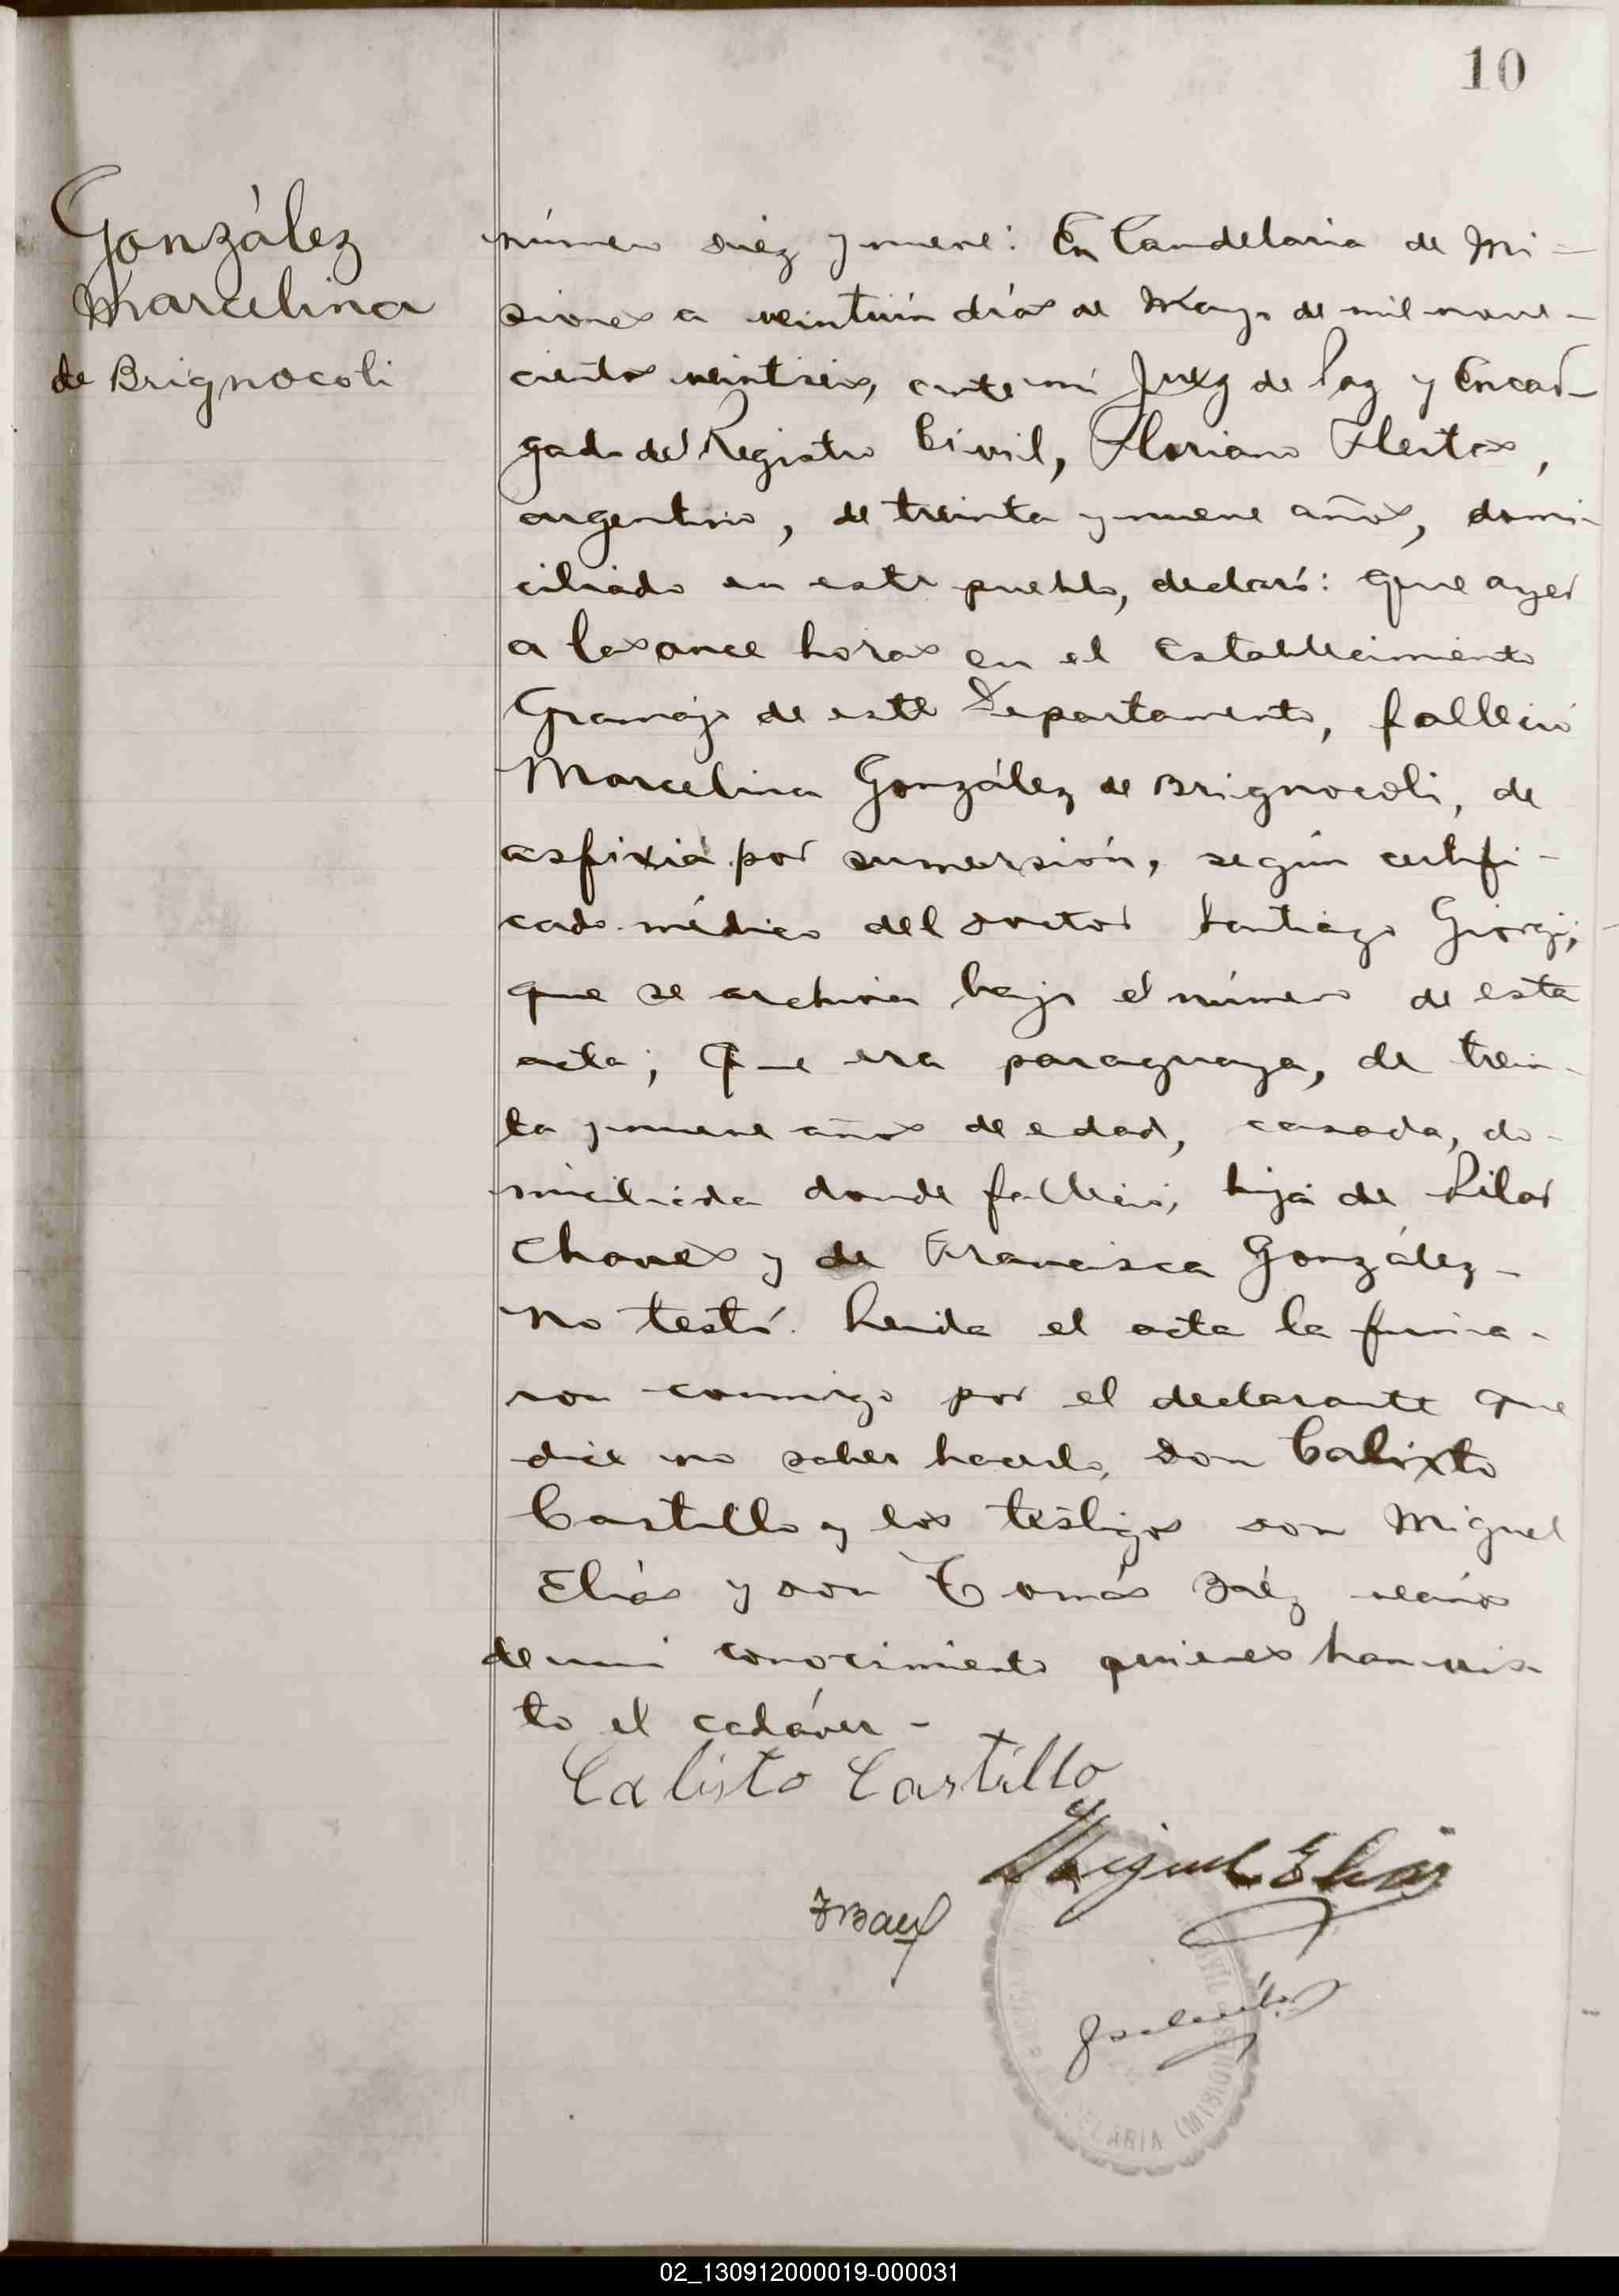 10
González
Marcelina
de Brignocoli
número diez y nueve: En Candelaria de Mi=
siones a veintiún días de Mayo de mil nove-
cientos veintiseis, ante mí Juez de Paz y Encar-
gado del Registro Civil, Floriano Fleitas,
argentino, de treinta y nueve años, domi-
ciliado en este pueblo, declaró: Que ayer
a las once horas en el Establecimiento
Gramajo de este Departamento, falleció
Marcelina González de Brignocoli, de
asfixia por sumersión, según certifi-
cado médico del doctor Santiago Giorgi,
que se archiva bajo el número de esta
acta; Que era paraguaya, de trein-
ta y nueve años de edad, casada, do-
miciliada donde falleció, hija de Pilar
Chavez y de Francisca González-
No testó. Leida el acta la firma-
ron conmigo por el declarante que
dice no saber hacerlo, don Calixto
Castillo y los testigos don Miguel
Elías y don Tomás Baéz vecinos
de mi conocimiento quienes han vis-
to el cadáver-
Calisto Castillo
Miguel Elias
TBaez
CANDELARIA (MISIONES)
02_130912000019-000031